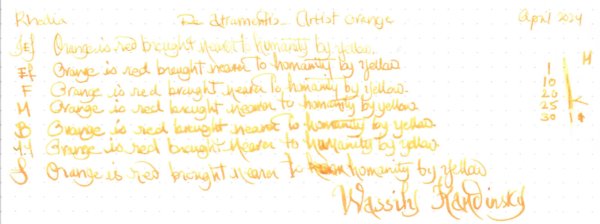 Rhodia De Atramentis - Artist Orange April 2024
JEF Orange is red brought nearer to humanity by yellow.
EF Orange is red brought nearer to humanity by yellow
F Orange is red brought nearer to humanity by yellow.
M Orange is red brought nearer to humanity by yellow.
B Orange is red brought nearer to humanity by yellow.
Orange is red brought nearer to humanity by yellow
Orange is red brought nearer to humanity by yellow
Wassily Kandinsky
M
1
10
20
25
30